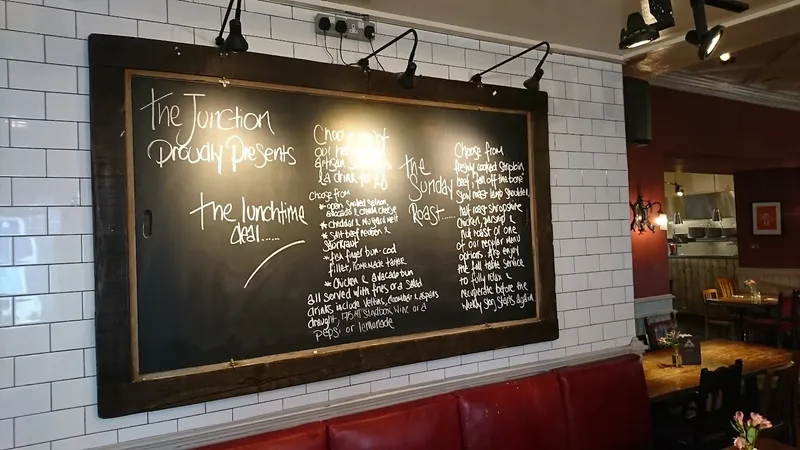 The Junction
Proudly Presents
The lunchtime
deal......
Choose
our
artisan
& a drink for
Choose from
* open smoked salmon,
avocado & cream cheese
* cheddar & melt
* salt beef reuben &
sourkraut
* fish finger bun - cod
fillet, homemade tartare
* Chicken & avocado bun
all served with fries or a salad
drinks include Veltins, & aspens
draught, 175ml Sandbox wine or a
pepsi or lemonade
The
Sunday
Roast.....
Choose from
freshly cooked sirloin
beef, "fall off the bone"
slow roast lamb shoulder,
half roast shropshire
chicken, parsnip &
nut roast or one
of our regular menu
options. Also enjoy
the full table service
to fully relax &
recuperate before the
weekly slog starts again